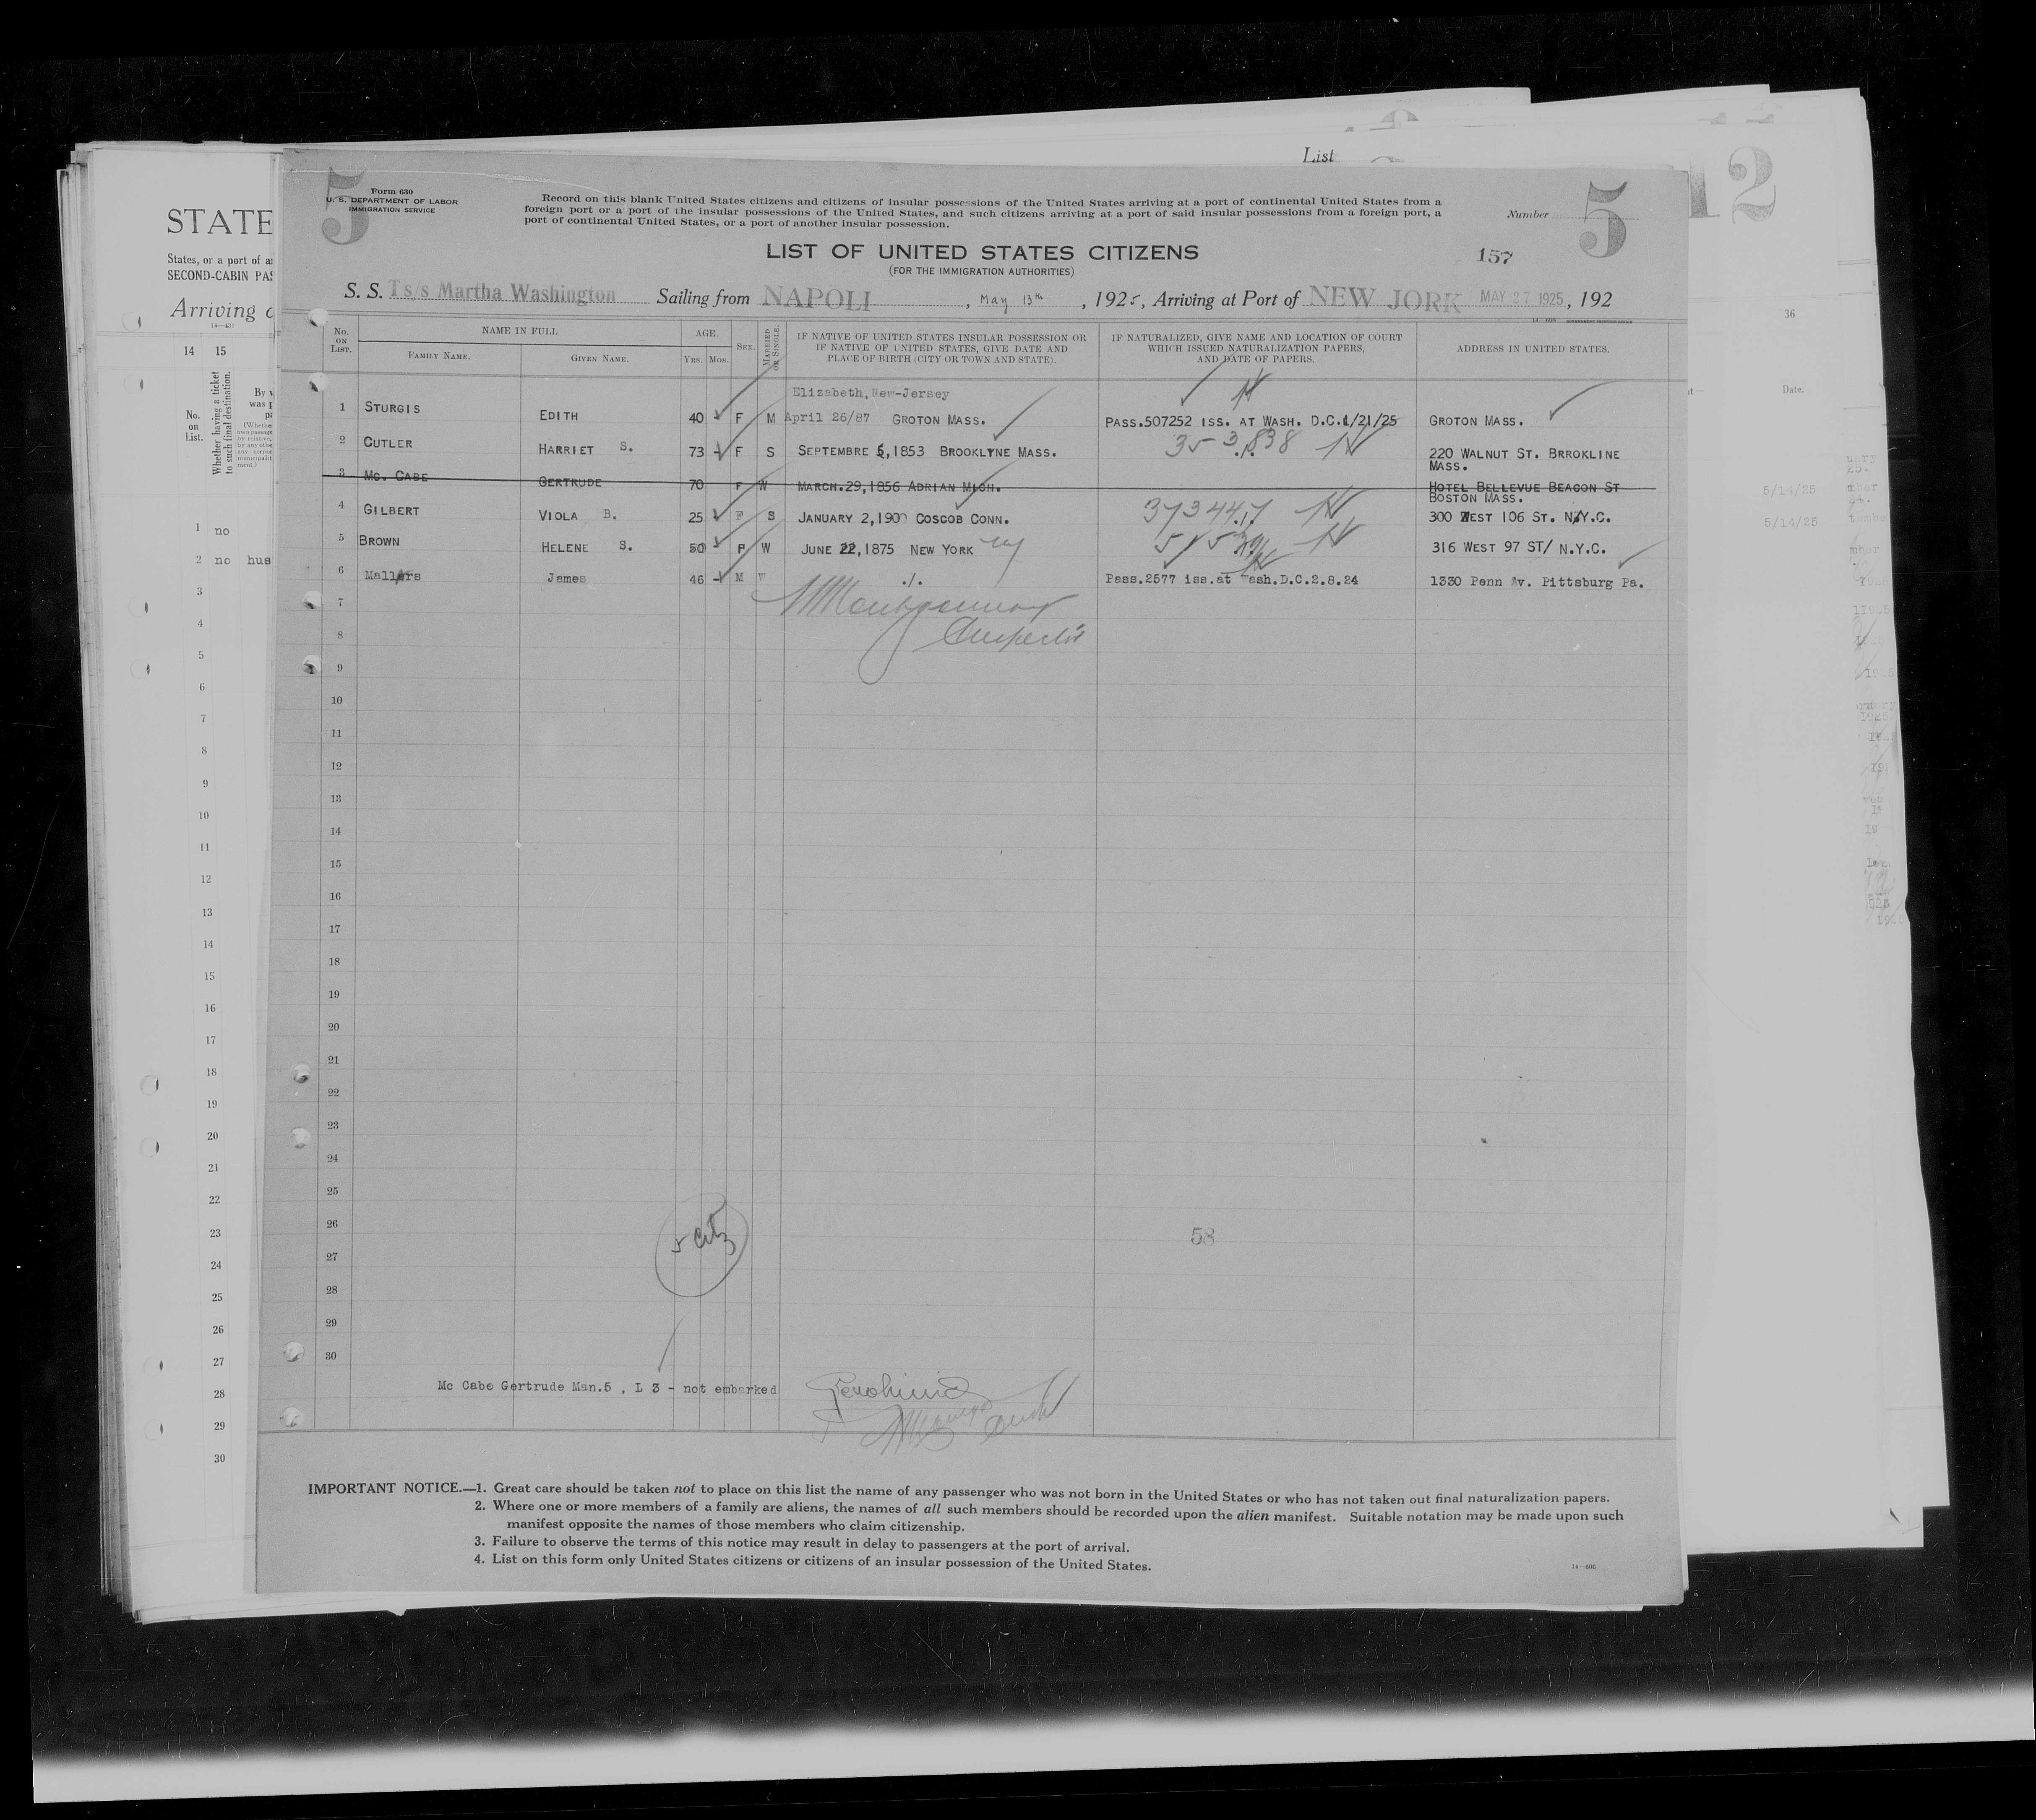 List
12
5
Form 630
U. S. DEPARTMENT OF LABOR
IMMIGRATION SERVICE
Record on this blank United States citizens and citizens of insular possessions of the United States arriving at a port of continental United States from a
foreign port or a port of the insular possessions of the United States, and such citizens arriving at a port of said insular possessions from a foreign port, a
port of continental United States, or a port of another insular possession.
Number
5
LIST OF UNITED STATES CITIZENS
(FOR THE IMMIGRATION AUTHORITIES)
157
S. S. Ts/s Martha Washington Sailing from NAPOLI, May 13th, 1925, Arriving at Port of NEW JORK MAY 27 1925, 192
No. ON LIST.
NAME IN FULL
FAMILY NAME.
GIVEN NAME.
AGE.
YRS. MOS.
SEX.
MARRIED OR SINGLE.
IF NATIVE OF UNITED STATES INSULAR POSSESSION OR
IF NATIVE OF UNITED STATES, GIVE DATE AND
PLACE OF BIRTH (CITY OR TOWN AND STATE).
IF NATURALIZED, GIVE NAME AND LOCATION OF COURT
WHICH ISSUED NATURALIZATION PAPERS,
AND DATE OF PAPERS.
ADDRESS IN UNITED STATES.
Elizabeth, New-Jersey
1 STURGIS EDITH 40 - F M April 26/87 GROTON MASS. PASS.507252 ISS. AT WASH. D.C.1/21/25 GROTON MASS.
2 CUTLER HARRIET S. 73 - F S SEPTEMBRE 6,1853 BROOKLYNE MASS. 353838 220 WALNUT ST. BRROKLINE
MASS.
3 MC. CABE GERTRUDE 70 F W MARCH.29,1856 ADRIAN MICH. HOTEL BELLEVUE BEACON ST
BOSTON MASS.
4 GILBERT VIOLA B. 25 - F S JANUARY 2,1900 COSCOB CONN. 373441 300 WEST 106 ST. N.Y.C.
5 BROWN HELENE S. 50 - F W JUNE 22,1875 NEW YORK NY 316 WEST 97 ST/ N.Y.C.
6 Mallers James 46 - M ./. Pass.2577 iss.at Wash.D.C.2.8.24 1330 Penn Av. Pittsburg Pa.
7
Inspector
8
9
10
11
12
13
14
15
16
17
18
19
20
21
22
23
24
25
26
5 Citz
58
27
28
29
30
Mc Cabe Gertrude Man.5 , L 3 - not embarked
IMPORTANT NOTICE.—1. Great care should be taken not to place on this list the name of any passenger who was not born in the United States or who has not taken out final naturalization papers.
2. Where one or more members of a family are aliens, the names of all such members should be recorded upon the alien manifest. Suitable notation may be made upon such
manifest opposite the names of those members who claim citizenship.
3. Failure to observe the terms of this notice may result in delay to passengers at the port of arrival.
4. List on this form only United States citizens or citizens of an insular possession of the United States.
STATE
States, or a port of
SECOND-CABIN
Arriving
14 15
No. on List.
Whether having a ticket to such final destination.
By
was
1 no
2 no hus
3
4
5
6
7
8
9
10
11
12
13
14
15
16
17
18
19
20
21
22
23
24
25
26
27
28
29
30
36
Date.
5/14/25
5/14/25